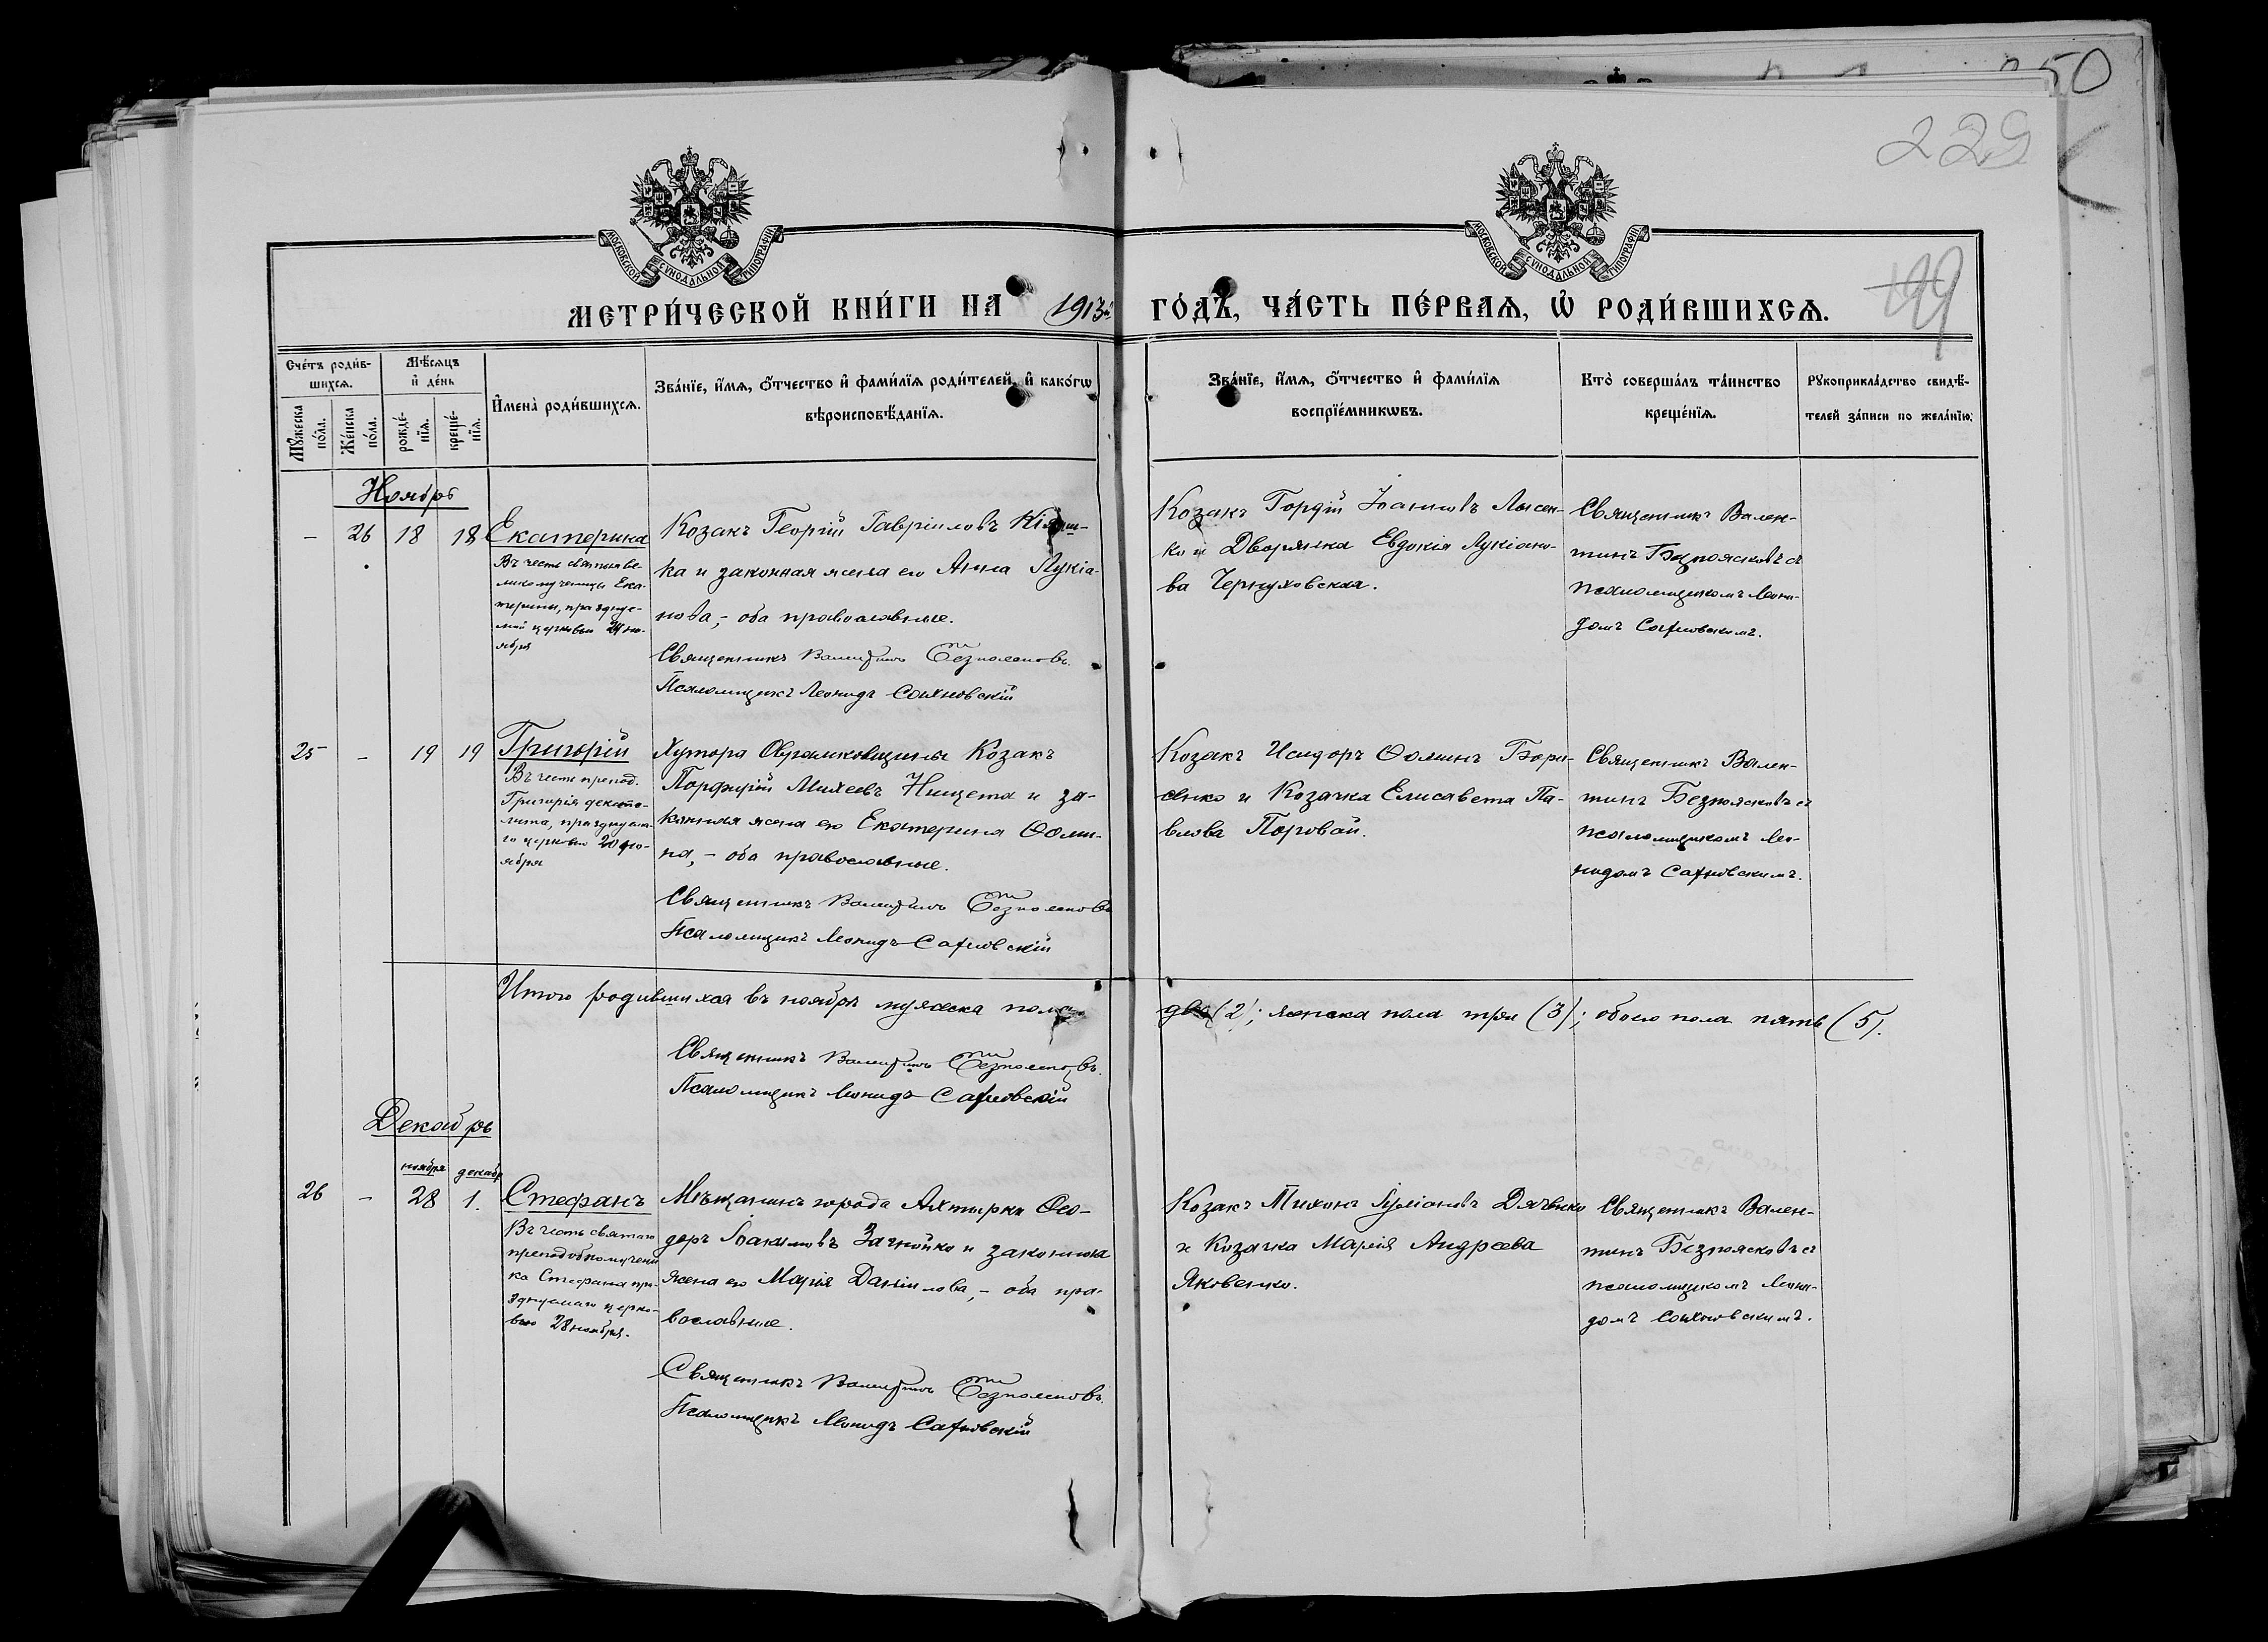 250
229
199
МОСКОВСКОЙ СѴНОДАЛЬНОЙ ТИПОГРАФІИ
МОСКОВСКОЙ СѴНОДАЛЬНОЙ ТИПОГРАФІИ
МЕТРИ́ЧЕСКОЙ КНИ́ГИ НА 1913й ГО́ДЪ, ЧА́СТЬ ПЕ́РВАѦ, Ѡ҆ РОДИ́ВШИХСѦ.
Сче́тъ роди́в-
шихсѧ.
Мѣ́сѧцъ
и҆ де́нь
Мꙋ́жеска
по́ла.
Же́нска
по́ла.
рожде́-
нїѧ.
креще́-
нїѧ.
И҆мена̀ роди́вшихсѧ.
Зва́нїе, и҆́мѧ, ѻ҆́тчество и҆ фами́лїѧ роди́телей, и҆ како́гѡ
вѣроисповѣ́данїѧ.
Зва́нїе, и҆́мѧ, ѻ҆́тчество и҆ фами́лїѧ
воспрїе́мникѡвъ.
Кто̀ соверша́лъ та́инство
креще́нїѧ.
Рꙋкоприкла́дство свидѣ́-
телей за́писи по жела́нїю.
Ноябрь
– 26 18 18 Екатерина
Въ честь святыя ве-
ликомученицы Ека-
терины, празднуе-
мой церковью 24 но-
ября
Козакъ Георгій Гавріиловъ
ка и законная жена его Анна Лукіа-
нова, – оба православные.
Священникъ Валентинъ Безпоясковъ.
Псаломщикъ Леонидъ Сахновскій
Козакъ Гордій Іоанновъ Лысен-
ко и Дворянка Евдокія Лукіано-
ва Чернуховская.
Священникъ Вален-
тинъ Безпоясковъ съ
псаломщикомъ Леони-
домъ Сахновскимъ.
25 – 19 19 Григорій
Въ честь препод.
Григорія декапо-
лита, празднуема-
го церковью 20 но-
ября
Хутора Козакъ
Порфирій Михеевъ Нищета и за-
конная жена его Екатерина Ѳоми-
на, – оба православные.
Священникъ Валентинъ Безпоясковъ
Псаломщикъ Леонидъ Сахновскій
Козакъ Исидоръ Ѳоминъ Бори-
сенко и Козачка Елисавета Па-
влова Поровай.
Священникъ Вален-
тинъ Безпоясковъ съ
псаломщикомъ Лео-
нидомъ Сахновскимъ.
Итого родившихся въ ноябрѣ мужеска пола два (2); женска пола три (3); обоего пола пять (5).
Священникъ Валентинъ Безпоясковъ.
Псаломщикъ Леонидъ Сахновскій
Декабрь
ноября декабр
26 – 28 1. Стефанъ
Въ честь святаго
преподобномучени
ка Стефана пра-
зднуемаго церко-
вью 28 ноября.
Мѣщанинъ города Ахтырки Ѳео-
доръ Іоакимовъ Зачнойко и законная
жена его Марія Даніилова, – оба пра-
вославные.
Священникъ Валентинъ Безпоясковъ.
Псаломщикъ Леонидъ Сахновскій
Козакъ Тихонъ Іуліановъ Дяченко
и Козачка Марія Андреева
Яковенко.
Священникъ Вален-
тинъ Безпоясковъ съ
псаломщикомъ Леони-
домъ Сахновскимъ.